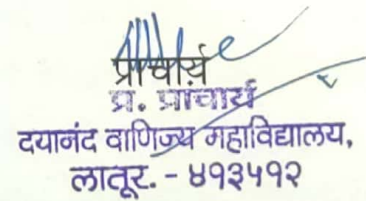 प्राचार्य
प्र. प्राचार्य
दयानंद वाणिज्य महाविद्यालय,
लातूर. - ४१३५१२